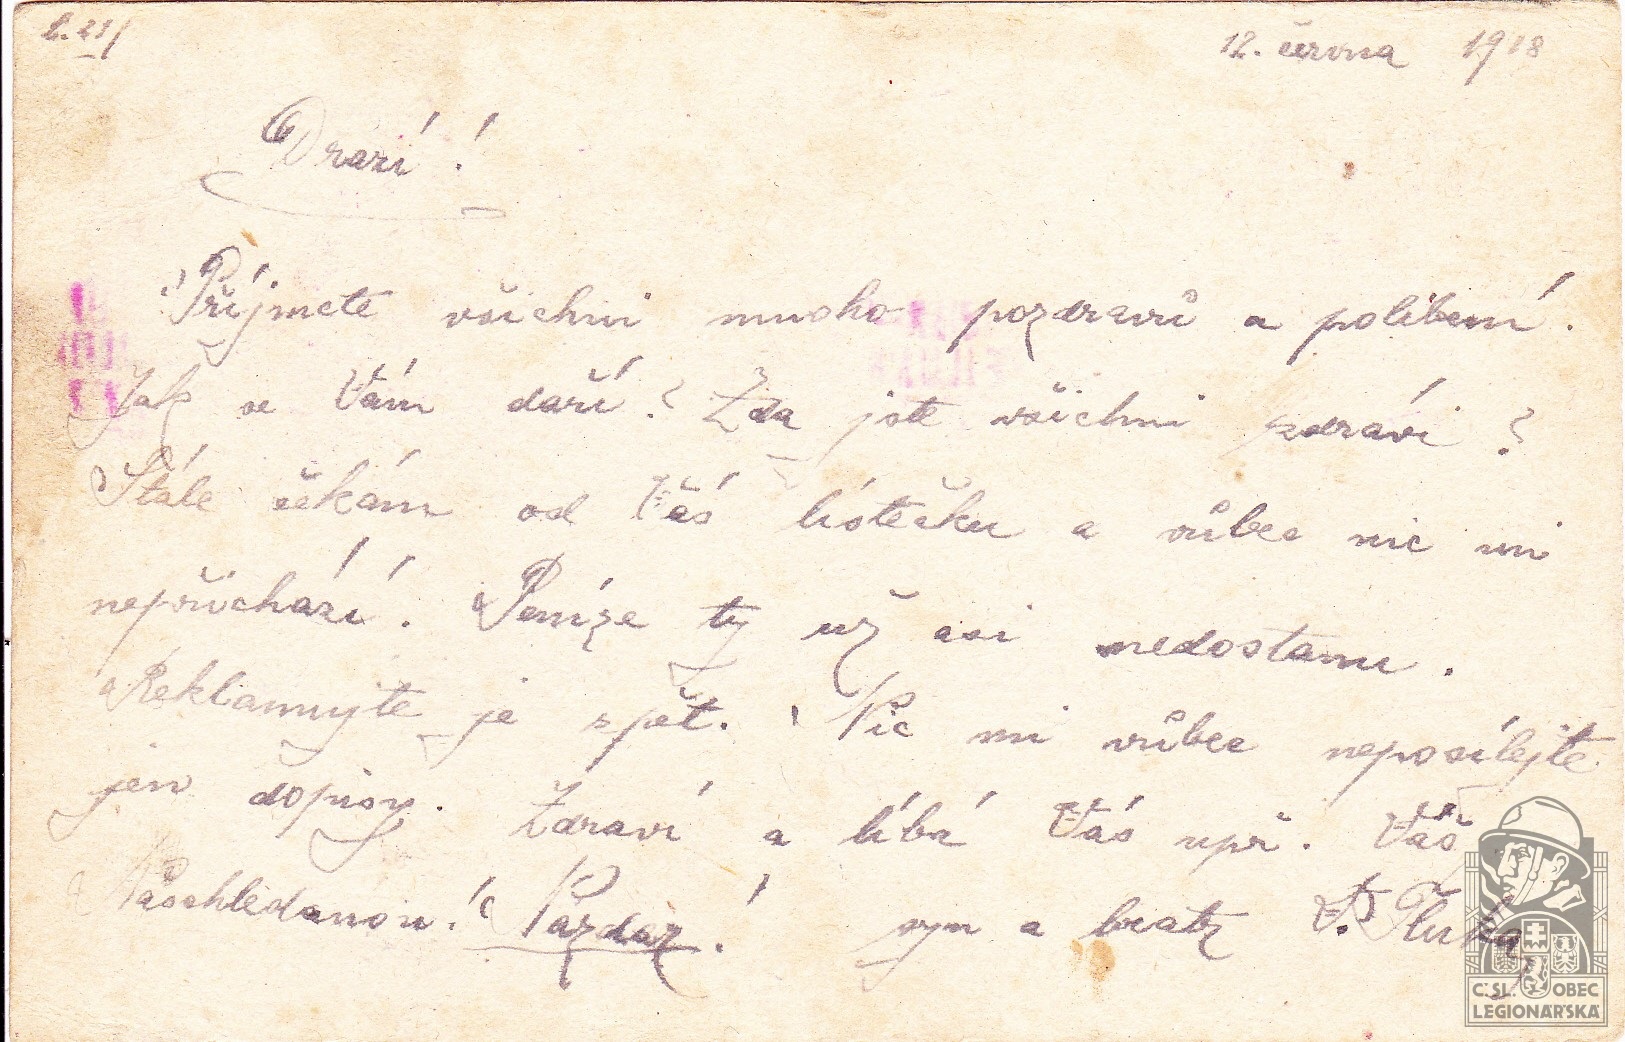 č. 21/ 12. června 1918
Drazí!
Příjmete všichni mnoho pozdravů a políbení.
Jak se Vám daří? Zda jste všichni zdrávi?
Stále čékám od Váś lístečku a vůbec nic mi
nepřichází. Peníze ty už asi nedostanu.
Reklamujte je zpět. Nic mi vůbec neposílejte
jen dopisy. Zdraví a líbá Vás upř. Váš
Naschledanou! Nazdar! syn a bratr
C.SL. OBEC
LEGIONÁŘSKÁ